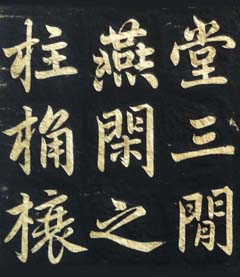 堂三間
燕閑之
柱桷榱